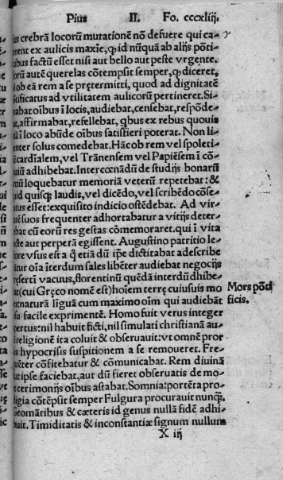 Pius II. Fo. cccxliij.
us crebrã locorũ mutationē nō defuere qui ca⸗
rent ex aulicis maxie, ꝙ id nũquã ab alijs põti⸗
ibus factũ esset nisi aut bello aut peste vrgente.
orũ autē querelas cõtempsit semper, ꝙ diceret,
iob eã rem a se prętermitti, quod ad dignitatē
ificatus ad vtilitatem aulicorũ pertineret. Si⸗
abat oībus ī locis, audiebat, censebat, respõde⸗
t, affirmabat, refellebat, ꝗbus ex rebus quouis
dī loco abũde oībus satisfieri poterat. Non li⸗
nter solus comedebat. Hãc ob rem vel spoleti⸗
cardīalem, vel Trãnensem vel Papiēsem ī cõ⸗
iũ adhibebat. Inter cœnãdũ de studijs bonarũ
mũ loquebatur memoriã veterũ repetebat: &
id quisq; laudis, vel dicēdo, vel scribēdo cõse⸗
tus esset: exquisito indicio ostēdebat. Ad vir⸗
suos frequenter adhortabatur a vitijs deter⸗
bat cũ eorũ res gestas cõmemoraret, qui ī vita
te aut perperã egissent. Augustino patritio le⸗
re vsus est a ꝗ etiã dũ ipe dictitabat adscribe
itur oīa iterdum sales libēter audiebat negocijs
nserti vacuus, florentinũ quēdã interdũ dhibe
(cui Gręco nomē est) hoiem terrę cuiusuis mo
naturã linguã cum maximo oīm qui audiebãt
sa facile exprimentē. Homo fuit verus integer
ertus: nil habuit ficti, nil simulati christianã au⸗
religionē ita coluit & obseruauit: vt omnē pror
hypocrisis suspitionem a se remoueret. Fre⸗
ter cõfitebatur & cõmunicabat. Rem diuinã
ipse faciebat, aut dũ fieret obseruatis de mo⸗
erimonijs oībus astabat. Somnia: portēta pro⸗
igia cõtēpsit semper Fulgura procurauit nunꝗ̃.
omãtibus & cæteris id genus nullã fidē adhi⸗
uit. Timiditatis & inconstantiæ signum nullum
Mors põti
ficis.
X iij